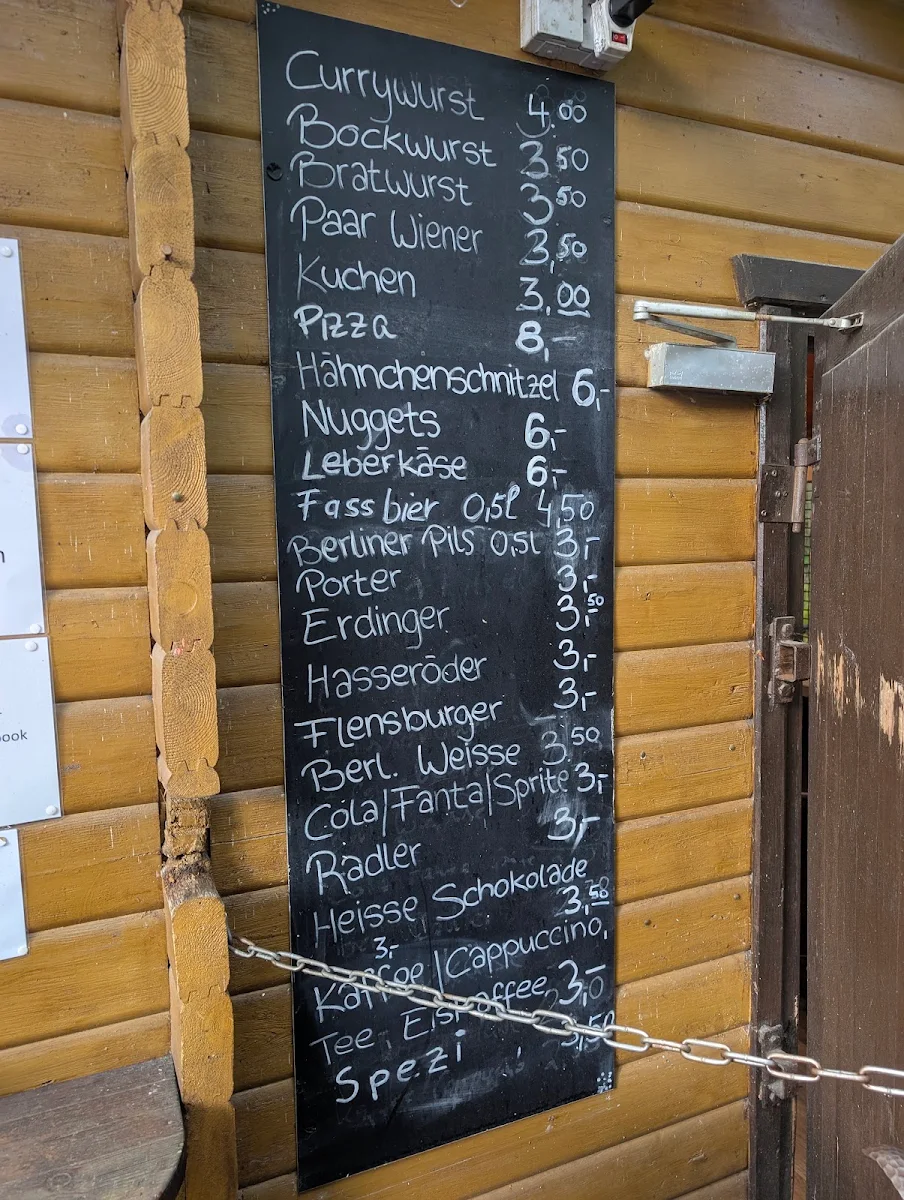 Currywurst 4,00
Bockwurst 3,50
Bratwurst 3,50
Paar Wiener 3,50
Kuchen 3,00
Pizza 8,-
Hähnchenschnitzel 6,-
Nuggets 6,-
Leberkäse 6,-
Fassbier 0,5l 4,50
Berliner Pils 0,5l 3,-
Porter 3,-
Erdinger 3,50
Hasseröder 3,-
Flensburger 3,-
Berl. Weisse 3,50
Cola/Fanta/Sprite 3,-
Radler 3,-
Heisse Schokolade
3,50
3,-
Kaffee/Cappuccino,
Tee, Eiskaffee 3,-
Spezi 3,50
ook